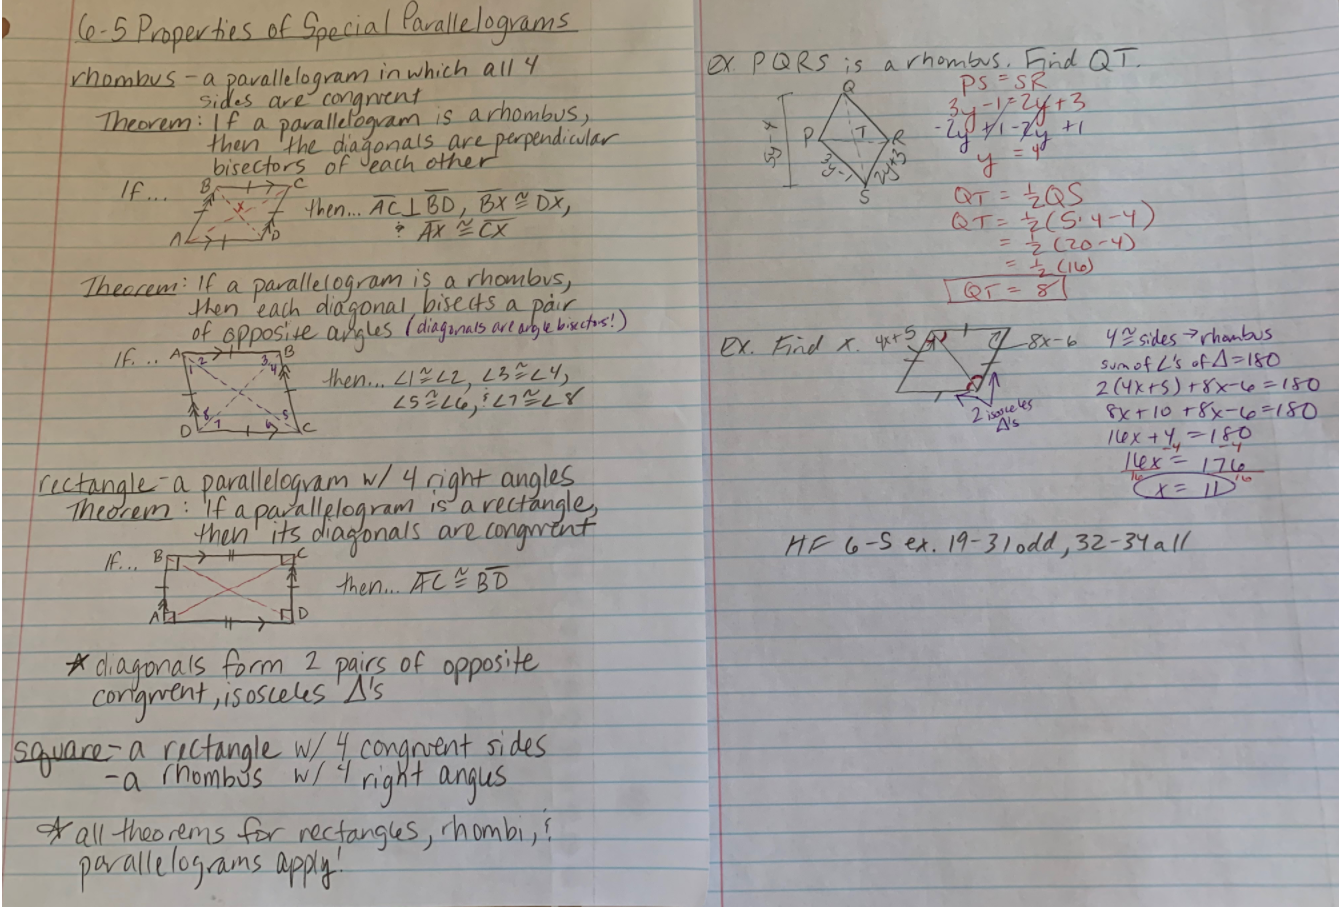 6-5 Properties of Special Parallelograms
rhombus - a parallelogram in which all 4
sides are congruent
Theorem: If a parallelogram is a rhombus,
then the diagonals are perpendicular
bisectors of each other
If...
B
C
X
A
D
then... AC ⊥ BD, BX ≅ DX,
& AX ≅ CX
Theorem: If a parallelogram is a rhombus,
then each diagonal bisects a pair
of opposite angles (diagonals are angle bisectors!)
If...
A
B
2
1
3
4
8
7
5
6
D
C
then... ∠1≅∠2, ∠3≅∠4,
∠5≅∠6, & ∠7≅∠8
rectangle - a parallelogram w/ 4 right angles
Theorem: If a parallelogram is a rectangle,
then its diagonals are congruent
If...
B
C
A
D
then... AC ≅ BD
* diagonals form 2 pairs of opposite
congruent, isosceles Δ's
square - a rectangle w/ 4 congruent sides
- a rhombus w/ 4 right angles
* all theorems for rectangles, rhombi, &
parallelograms apply!
ex. PQRS is a rhombus. Find QT.
Q
P
T
R
S
3y-1
2y+3
PS = SR
3y-1=2y+3
-2y+1-2y+1
y = 4
QT = ½QS
QT = ½(5·4-4)
= ½(20-4)
= ½(16)
QT = 8
Ex. Find x.
4x+5
8x-6
2 isosceles
Δ's
4 ≅ sides → rhombus
sum of ∠'s of Δ=180
2(4x+5)+8x-6=180
8x+10+8x-6=180
16x+4=180
-4 -4
16x = 176
16 16
x = 11
HF 6-5 ex. 19-31odd, 32-34all